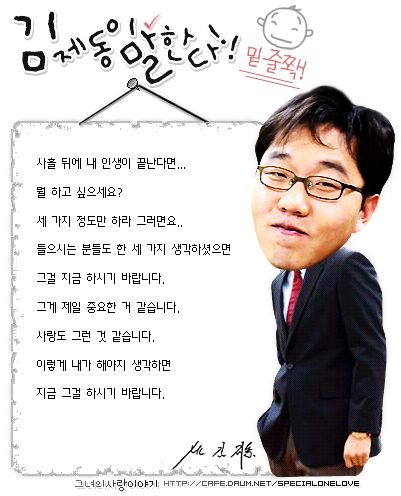 김제동이 말한다!
밑줄쫙!
사흘 뒤에 내 인생이 끝난다면...
뭘 하고 싶으세요?
세 가지 정도만 하라 그러면요..
들으시는 분들도 한 세 가지 생각하셨으면
그걸 지금 하시기 바랍니다.
그게 제일 중요한 거 같습니다.
사랑도 그런 것 같습니다.
이렇게 내가 해야지 생각하면
지금 그걸 하시기 바랍니다.
그녀의사랑이야기 HTTP://CAFE.DAUM.NET/SPECIALONELOVE